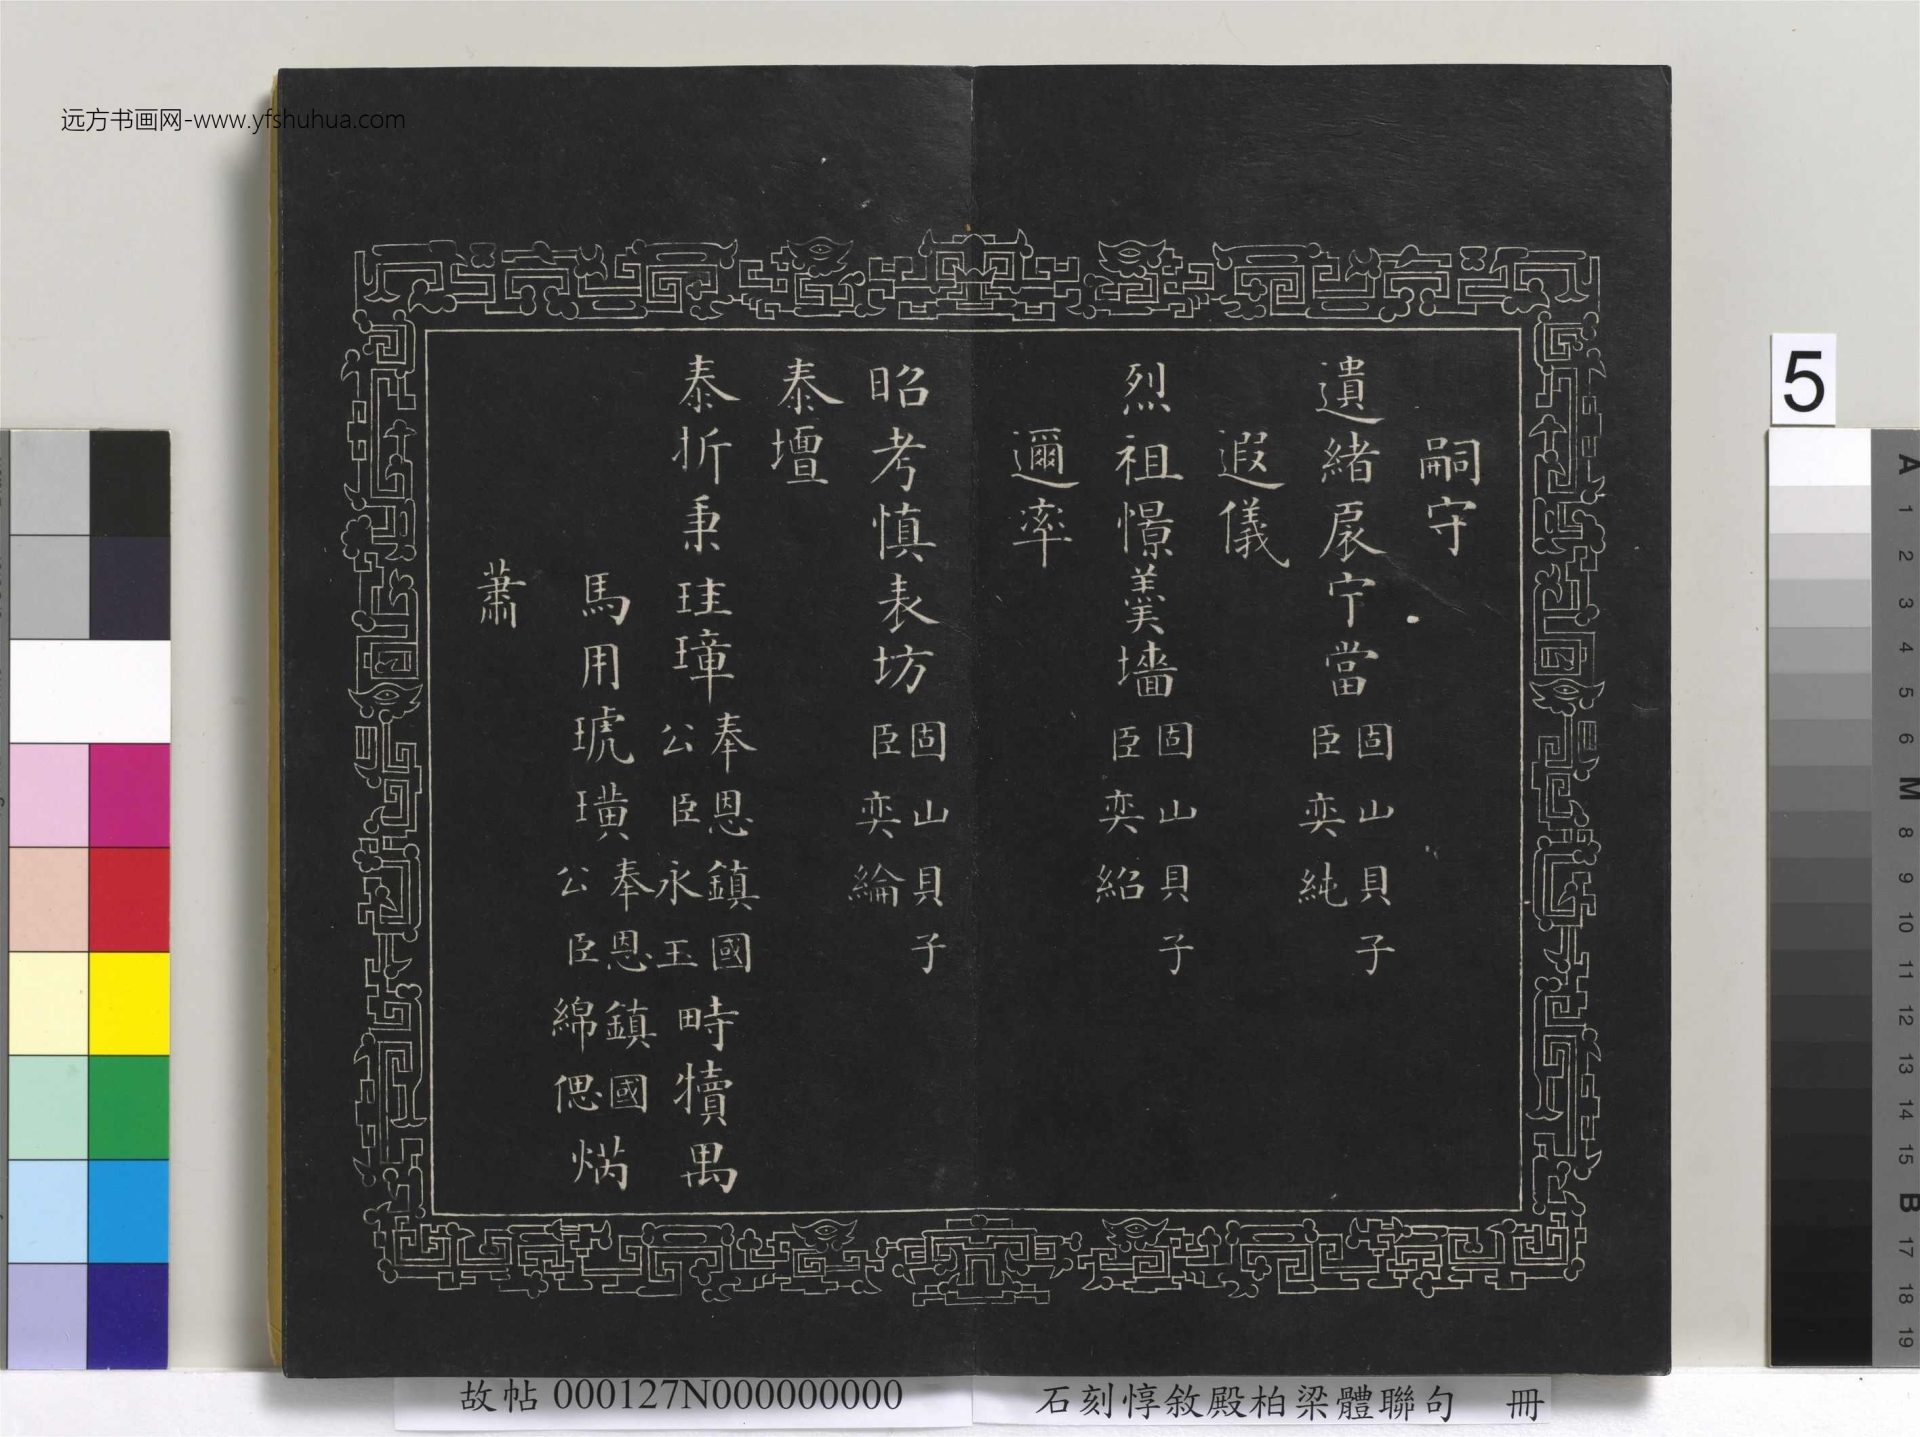 远方书画网-www.yfshuhua.com
嗣守
遺緒扆宁當固山貝子臣奕純
遐儀
烈祖憬羹墻固山貝子臣奕紹
邇率
昭考慎表坊固山貝子臣奕綸
泰壇
泰折秉珪璋奉恩鎮國公臣永玉畤犢禺
馬用琥璜奉恩鎮國公臣綿偲焫
蕭
5
A
1
2
3
4
5
6
M
8
9
10
11
12
13
14
15
B
17
18
19
故帖 000127N000000000
石刻惇敘殿柏梁體聯句 冊